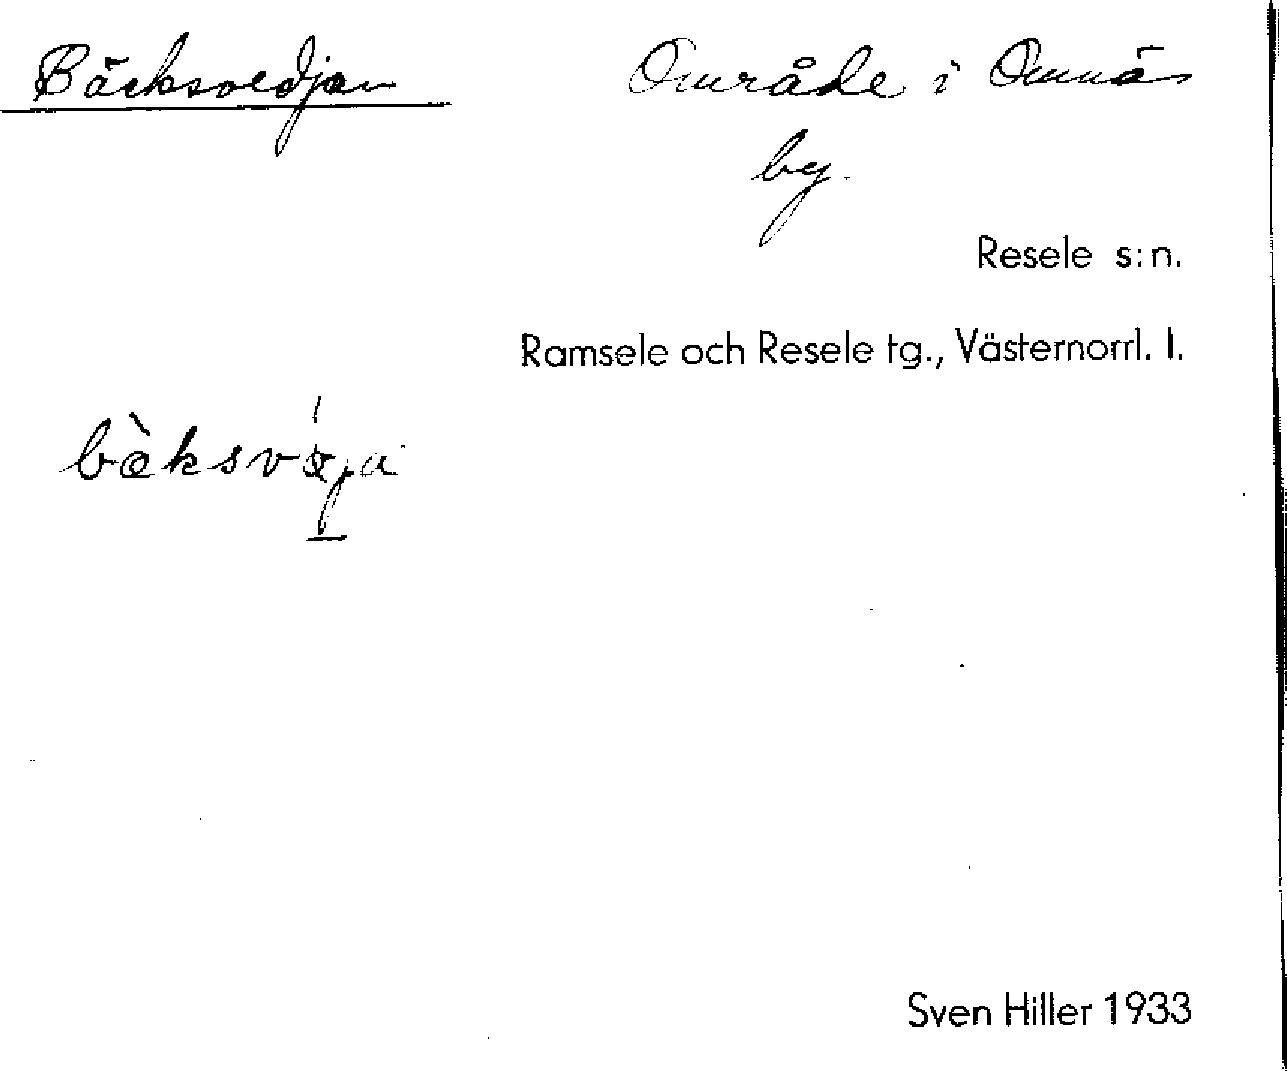 Bäcksvedjan
Område i Omnäs
by.
Resele s:n.
Ramsele och Resele tg., Västernorrl. l.
Sven Hiller 1933